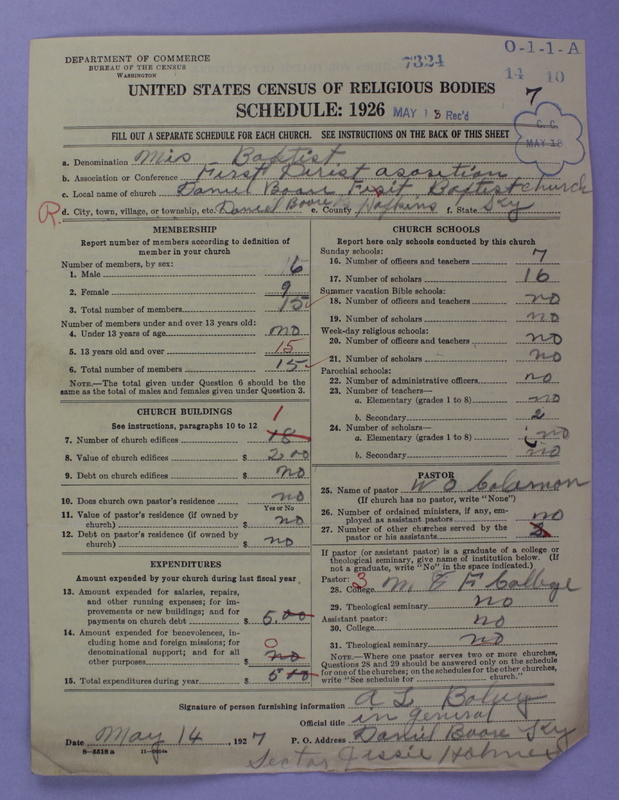 O-1-1-A
DEPARTMENT OF COMMERCE
BUREAU OF THE CENSUS
WASHINGTON
7324
14 10
UNITED STATES CENSUS OF RELIGIOUS BODIES
7
SCHEDULE: 1926
MAY 13 Rec'd
C. C.
MAY 18
FILL OUT A SEPARATE SCHEDULE FOR EACH CHURCH. SEE INSTRUCTIONS ON THE BACK OF THIS SHEET
a. Denomination Mis Baptist
b. Association or Conference First Dirist asosetion
c. Local name of church Daniel Boone Baptist church
R. d. City, town, village, or township, etc. Daniel Boone e. County Hopkins f. State Ky
MEMBERSHIP
Report number of members according to definition of member in your church
Number of members, by sex:
1. Male 6
2. Female 9
3. Total number of members 15
Number of members under and over 13 years old:
4. Under 13 years of age no
5. 13 years old and over 15
6. Total number of members 15
NOTE.—The total given under Question 6 should be the
same as the total of males and females given under Question 3.
CHURCH BUILDINGS
See instructions, paragraphs 10 to 12
1
7. Number of church edifices 18
8. Value of church edifices $ 200
9. Debt on church edifices $ no
10. Does church own pastor's residence no
Yes or No
11. Value of pastor's residence (if owned by
church) $ no
12. Debt on pastor's residence (if owned by
church) $ no
EXPENDITURES
Amount expended by your church during last fiscal year
13. Amount expended for salaries, repairs,
and other running expenses; for im-
provements or new buildings; and for
payments on church debt $ 5.00
14. Amount expended for benevolences, in-
cluding home and foreign missions; for
denominational support; and for all
other purposes $ 0 no
15. Total expenditures during year $ 5
CHURCH SCHOOLS
Report here only schools conducted by this church
Sunday schools:
16. Number of officers and teachers 7
17. Number of scholars 16
Summer vacation Bible schools:
18. Number of officers and teachers no
19. Number of scholars no
Week-day religious schools:
20. Number of officers and teachers no
21. Number of scholars no
Parochial schools:
22. Number of administrative officers no
23. Number of teachers—
a. Elementary (grades 1 to 8) no
b. Secondary 2
24. Number of scholars—
a. Elementary (grades 1 to 8) no
b. Secondary no
PASTOR
25. Name of pastor W O Colamon
(If church has no pastor, write "None")
26. Number of ordained ministers, if any, em-
ployed as assistant pastors no
27. Number of other churches served by the
pastor or his assistants
If pastor (or assistant pastor) is a graduate of a college or
theological seminary, give name of institution below. (If
not a graduate, write "No" in the space indicated.)
Pastor: 3
28. College M & F College
29. Theological seminary no
Assistant pastor:
30. College no
31. Theological seminary no
NOTE.—Where one pastor serves two or more churches,
Questions 28 and 29 should be answered only on the schedule
for one of the churches; on the schedules for the other churches,
write "See schedule for church."
Signature of person furnishing information A L
Official title in general
Date May 14, 1927 P. O. Address Daniel Boone Ky
8-5518a
Jessie